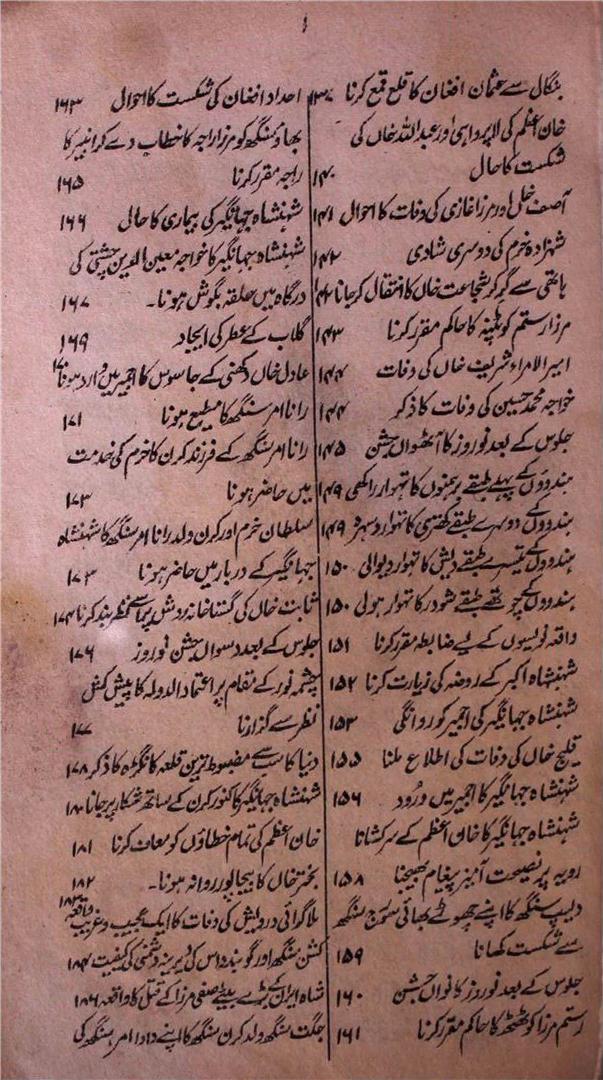 بنگال سے عثمان افغان کا قلع قمع کرنا ۱۳۷
خان اعظم کی لاپرواہی اور عبداللہ خاں کی
شکست کا حال ۱۴۰
آصف خاں اور مرزا غازی کی وفات کا احوال ۱۴۱
شہزادہ خرم کی دوسری شادی ۱۴۲
ہاتھی سے گر کر شجاعت خاں کا انتقال کر جانا ۱۴۲
مرزا رستم کو ٹھٹہ کا حاکم مقرر کرنا ۱۴۳
امیر الامراء شریف خاں کی وفات ۱۴۴
خواجہ محمد حسین کی وفات کا ذکر ۱۴۴
جلوس کے بعد نوروز کا آٹھواں جشن ۱۴۵
ہندوؤں کے پہلے طبقے برہمنوں کا تہوار راکھی ۱۴۹
ہندوؤں کے دوسرے طبقے کھتری کا تہوار دسہرہ ۱۴۹
ہندوؤں کے تیسرے طبقے ویش کا تہوار دیوالی ۱۵۰
ہندوؤں کے چوتھے طبقے شودر کا تہوار ہولی ۱۵۰
واقعہ نویسوں کے لیے ضابطہ مقرر کرنا ۱۵۱
شہنشاہ اکبر کے روضہ کی زیارت کرنا ۱۵۲
شہنشاہ جہانگیر کی اجمیر کو روانگی ۱۵۳
قلیج خاں کی وفات کی اطلاع ملنا ۱۵۵
شہنشاہ جہانگیر کا اجمیر میں ورود ۱۵۶
شہنشاہ جہانگیر کا خان اعظم کے سرکشانا
رویہ پر نصیحت آمیز پیغام بھیجنا ۱۵۸
دلیپ سنگھ کا اپنے چھوٹے بھائی سورج سنگھ
سے شکست کھانا ۱۵۹
جلوس کے بعد نوروز کا نواں جشن ۱۶۰
رستم مرزا کو ٹھٹھہ کا حاکم مقرر کرنا ۱۶۱
احداد افغان کی شکست کا احوال ۱۶۳
بھاؤ سنگھ کو مرزا راجہ کا خطاب دے کر انبیر کا
راجہ مقرر کرنا ۱۶۵
شہنشاہ جہانگیر کی بیماری کا حال ۱۶۶
شہنشاہ جہانگیر کا خواجہ معین الدین چشتی کی
درگاہ میں حلقہ بگوش ہونا۔ ۱۶۷
گلاب کے عطر کی ایجاد ۱۶۹
عادل خاں دکھنی کے جاسوس کا اجمیر میں وارد ہونا
رانا امر سنگھ کا مطیع ہونا ۱۷۱
رانا امر سنگھ کے فرزند کرن کا خرم کی خدمت
میں حاضر ہونا ۱۷۳
سلطان خرم اور کرن ولد رانا امر سنگھ کا شہنشاہ
جہانگیر کے دربار میں حاضر ہونا ۱۷۳
ثابت خاں کی گستاخانہ روش پر اسے نظر بند کرنا ۱۷۴
جلوس کے بعد دسواں جشن نوروز ۱۷۶
چشمہ نور کے مقام پر اعتماد الدولہ کا پیش کش
نظر سے گزارنا ۱۷۷
دنیا کا سب سے مضبوط ترین قلعہ کانگڑہ کا ذکر ۱۷۸
شہنشاہ جہانگیر کا کنور کرن کے ساتھ شکار پر جانا ۱۸۰
خان اعظم کی تمام خطاؤں کو معاف کرنا ۱۸۱
بختر خاں کا بیجاپور روانہ ہونا۔ ۱۸۲
بلاگرائی درویش کی وفات کا ایک عجیب و غریب واقعہ ۱۸۳
کشن سنگھ اور گوبند داس کی دیرینہ دشمنی کی کیفیت ۱۸۴
شاہ ایران کے بڑے بیٹے صفی مرزا کے قتل کا واقعہ ۱۸۶
جگت سنگھ ولد کرن سنگھ کا اپنے دادا امر سنگھ کی